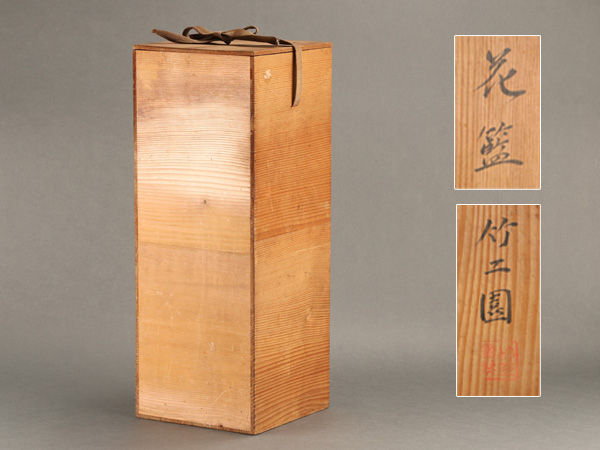 花籃
竹工園